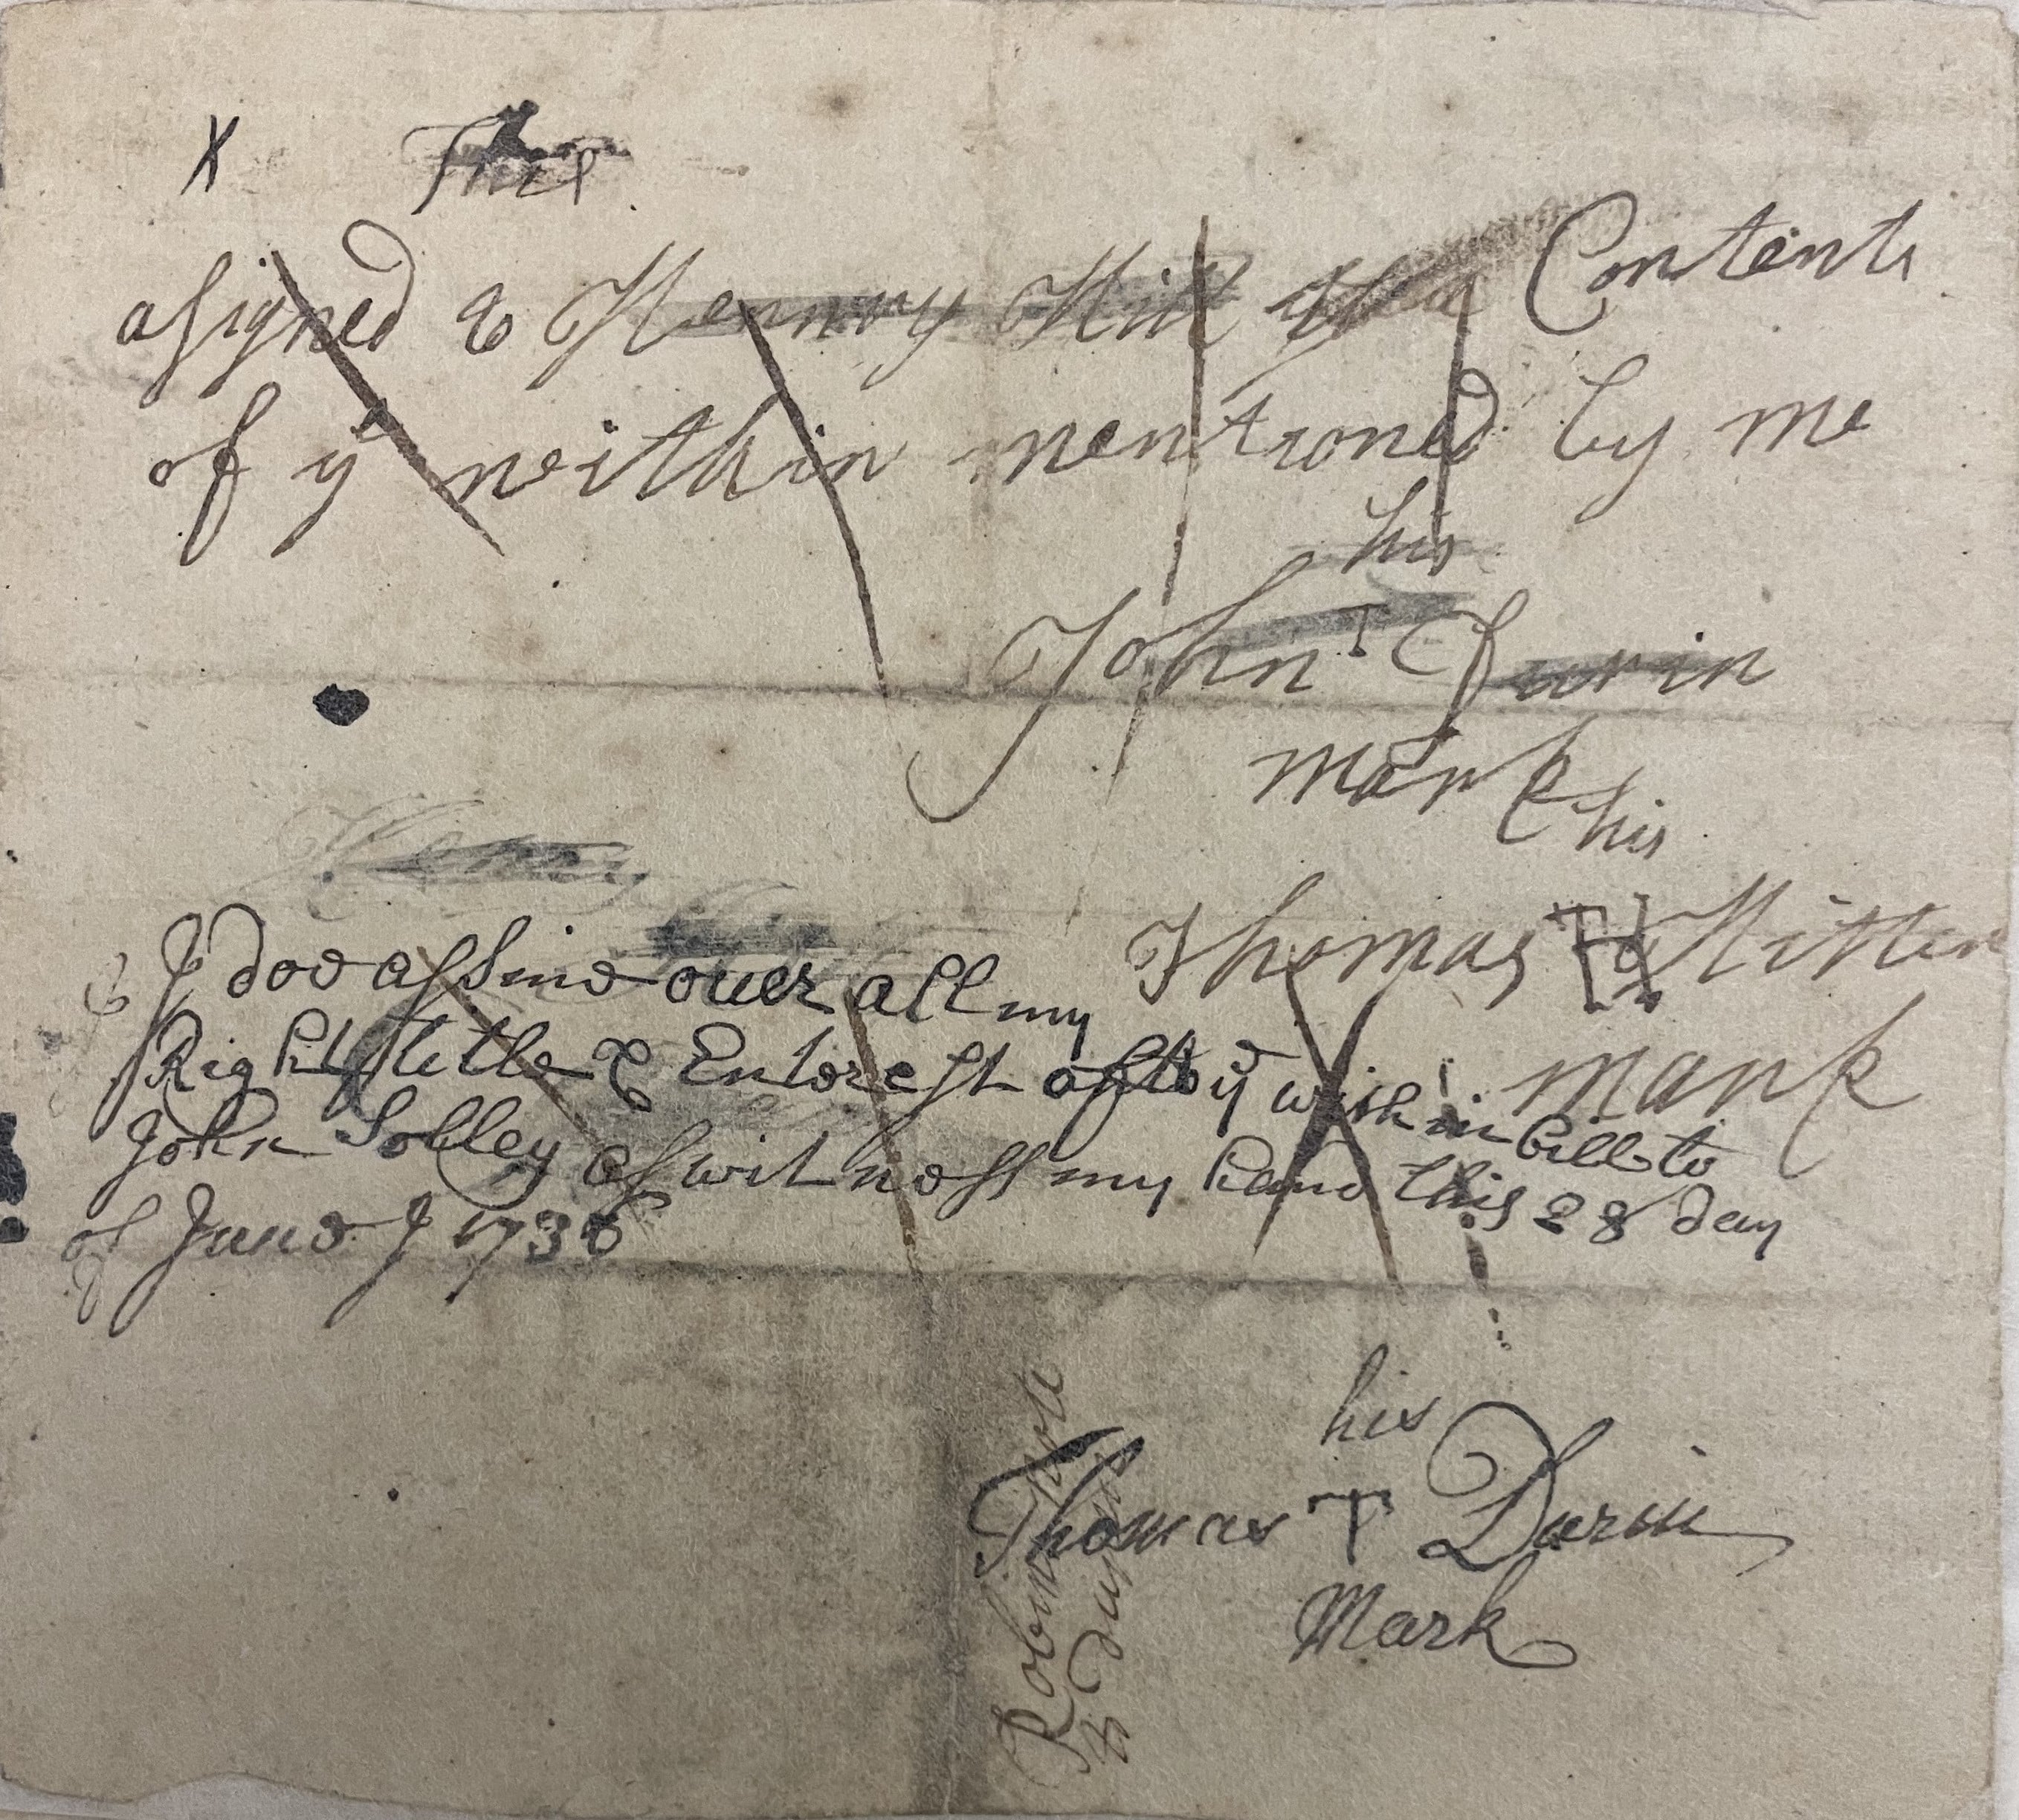 X
asigned to Hennry Hill the Contents
of ye within mentioned by me
his
John T Durin
mark
his
Thomas TH Hitten
mark
Henry
I doe assine over all my
Right title & Enterest of to ye within bill to
John Solley as witness my hand this 28 day
of June J 1736
his
Thomas T Durin
Mark
Robinson
to